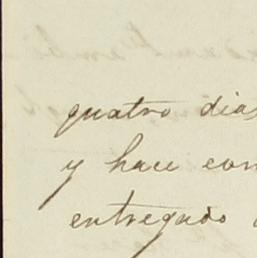 quatro dias
y hace con
entregado